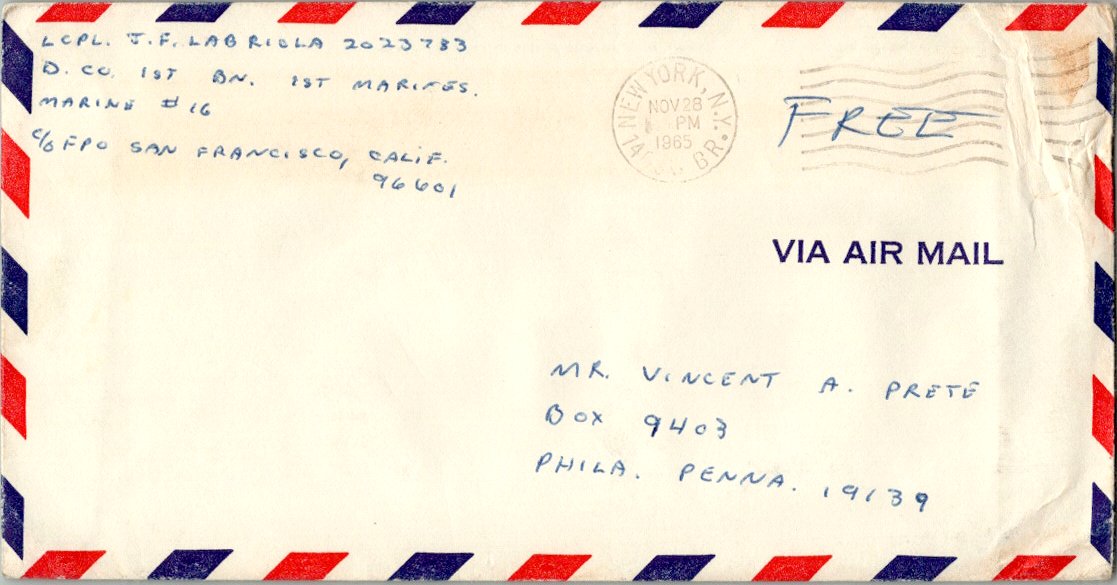 LCPL. J.F. LABRIOLA 2023783
D. CO. 1ST BN. 1ST MARINES.
MARINE # 16
c/o FPO SAN FRANCISCO, CALIF.
96601
NEW YORK, N.Y.
NOV 28
PM
1965
BR.
FREE
VIA AIR MAIL
MR. VINCENT A. PRETE
BOX 9403
PHILA. PENNA. 19139